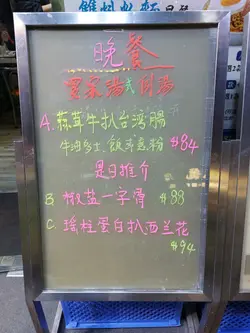 晚餐
皇家湯式例湯
A. 蒜茸牛扒台湾腸
牛油多士、飯、意粉 $84
是日推介
B 椒盐一字骨 $88
C. 瑤柱蛋白扒西兰花
$94